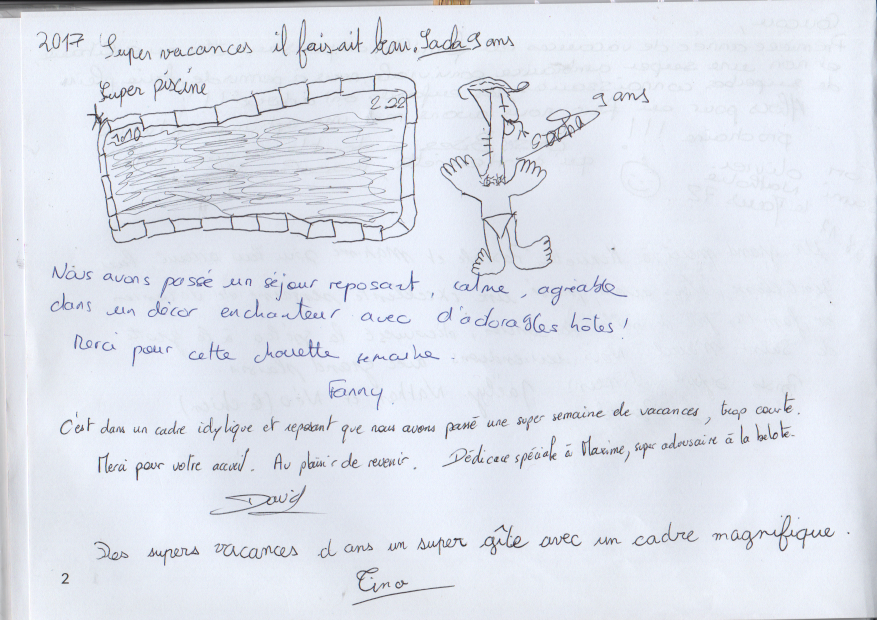 2017 Super vacances il faisait beau. Sacha 9 ans
Super piscine
2.22
9 ans
Sacha
Nous avons passé un séjour reposant, calme, agréable
dans un décor enchanteur avec d'adorables hôtes !
Merci pour cette chouette semaine.
Fanny.
C'est dans un cadre idylique et reposant que nous avons passé une super semaine de vacances, trop courte.
Merci pour votre accueil. Au plaisir de revenir. Dédicace spéciale à Maxime, super adversaire à la belote.
David
Des supers vacances dans un super gîte avec un cadre magnifique.
Tino
2